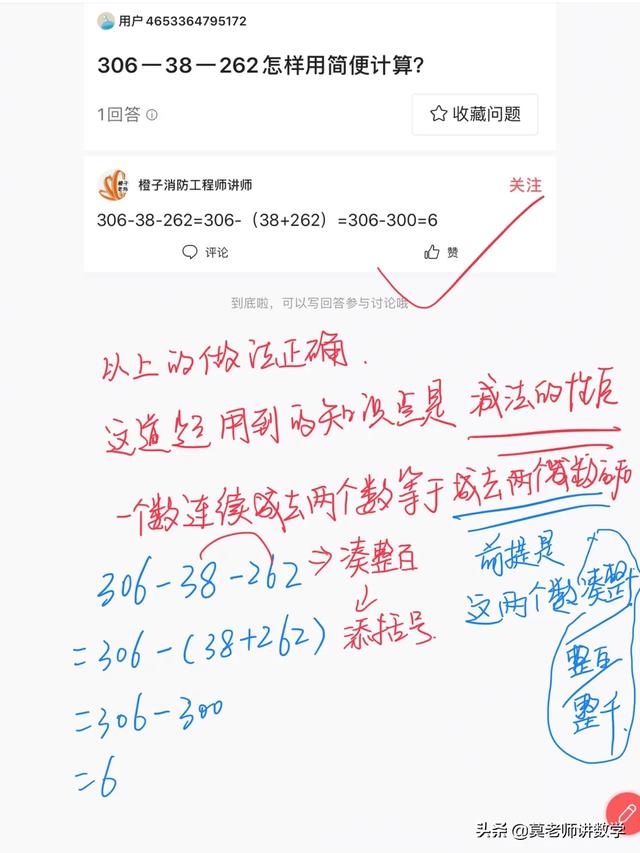 用户4653364795172
306－38－262怎样用简便计算?
1回答
收藏问题
橙子消防工程师讲师
关注
306-38-262=306-（38+262）=306-300=6
评论
赞
到底啦，可以写回答参与讨论哦
以上的做法正确.
这道题用到的知识点是 减法的性质
一个数连续减去两个数等于减去两个减数的和
306-38-262 → 凑整百
添括号.
=306-(38+262)
=306-300
=6
前提是
这两个数凑整十
整百
整千.
头条 @莫老师讲数学